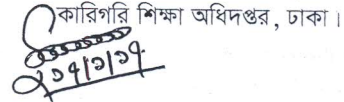 কারিগরি শিক্ষা অধিদপ্তর, ঢাকা।